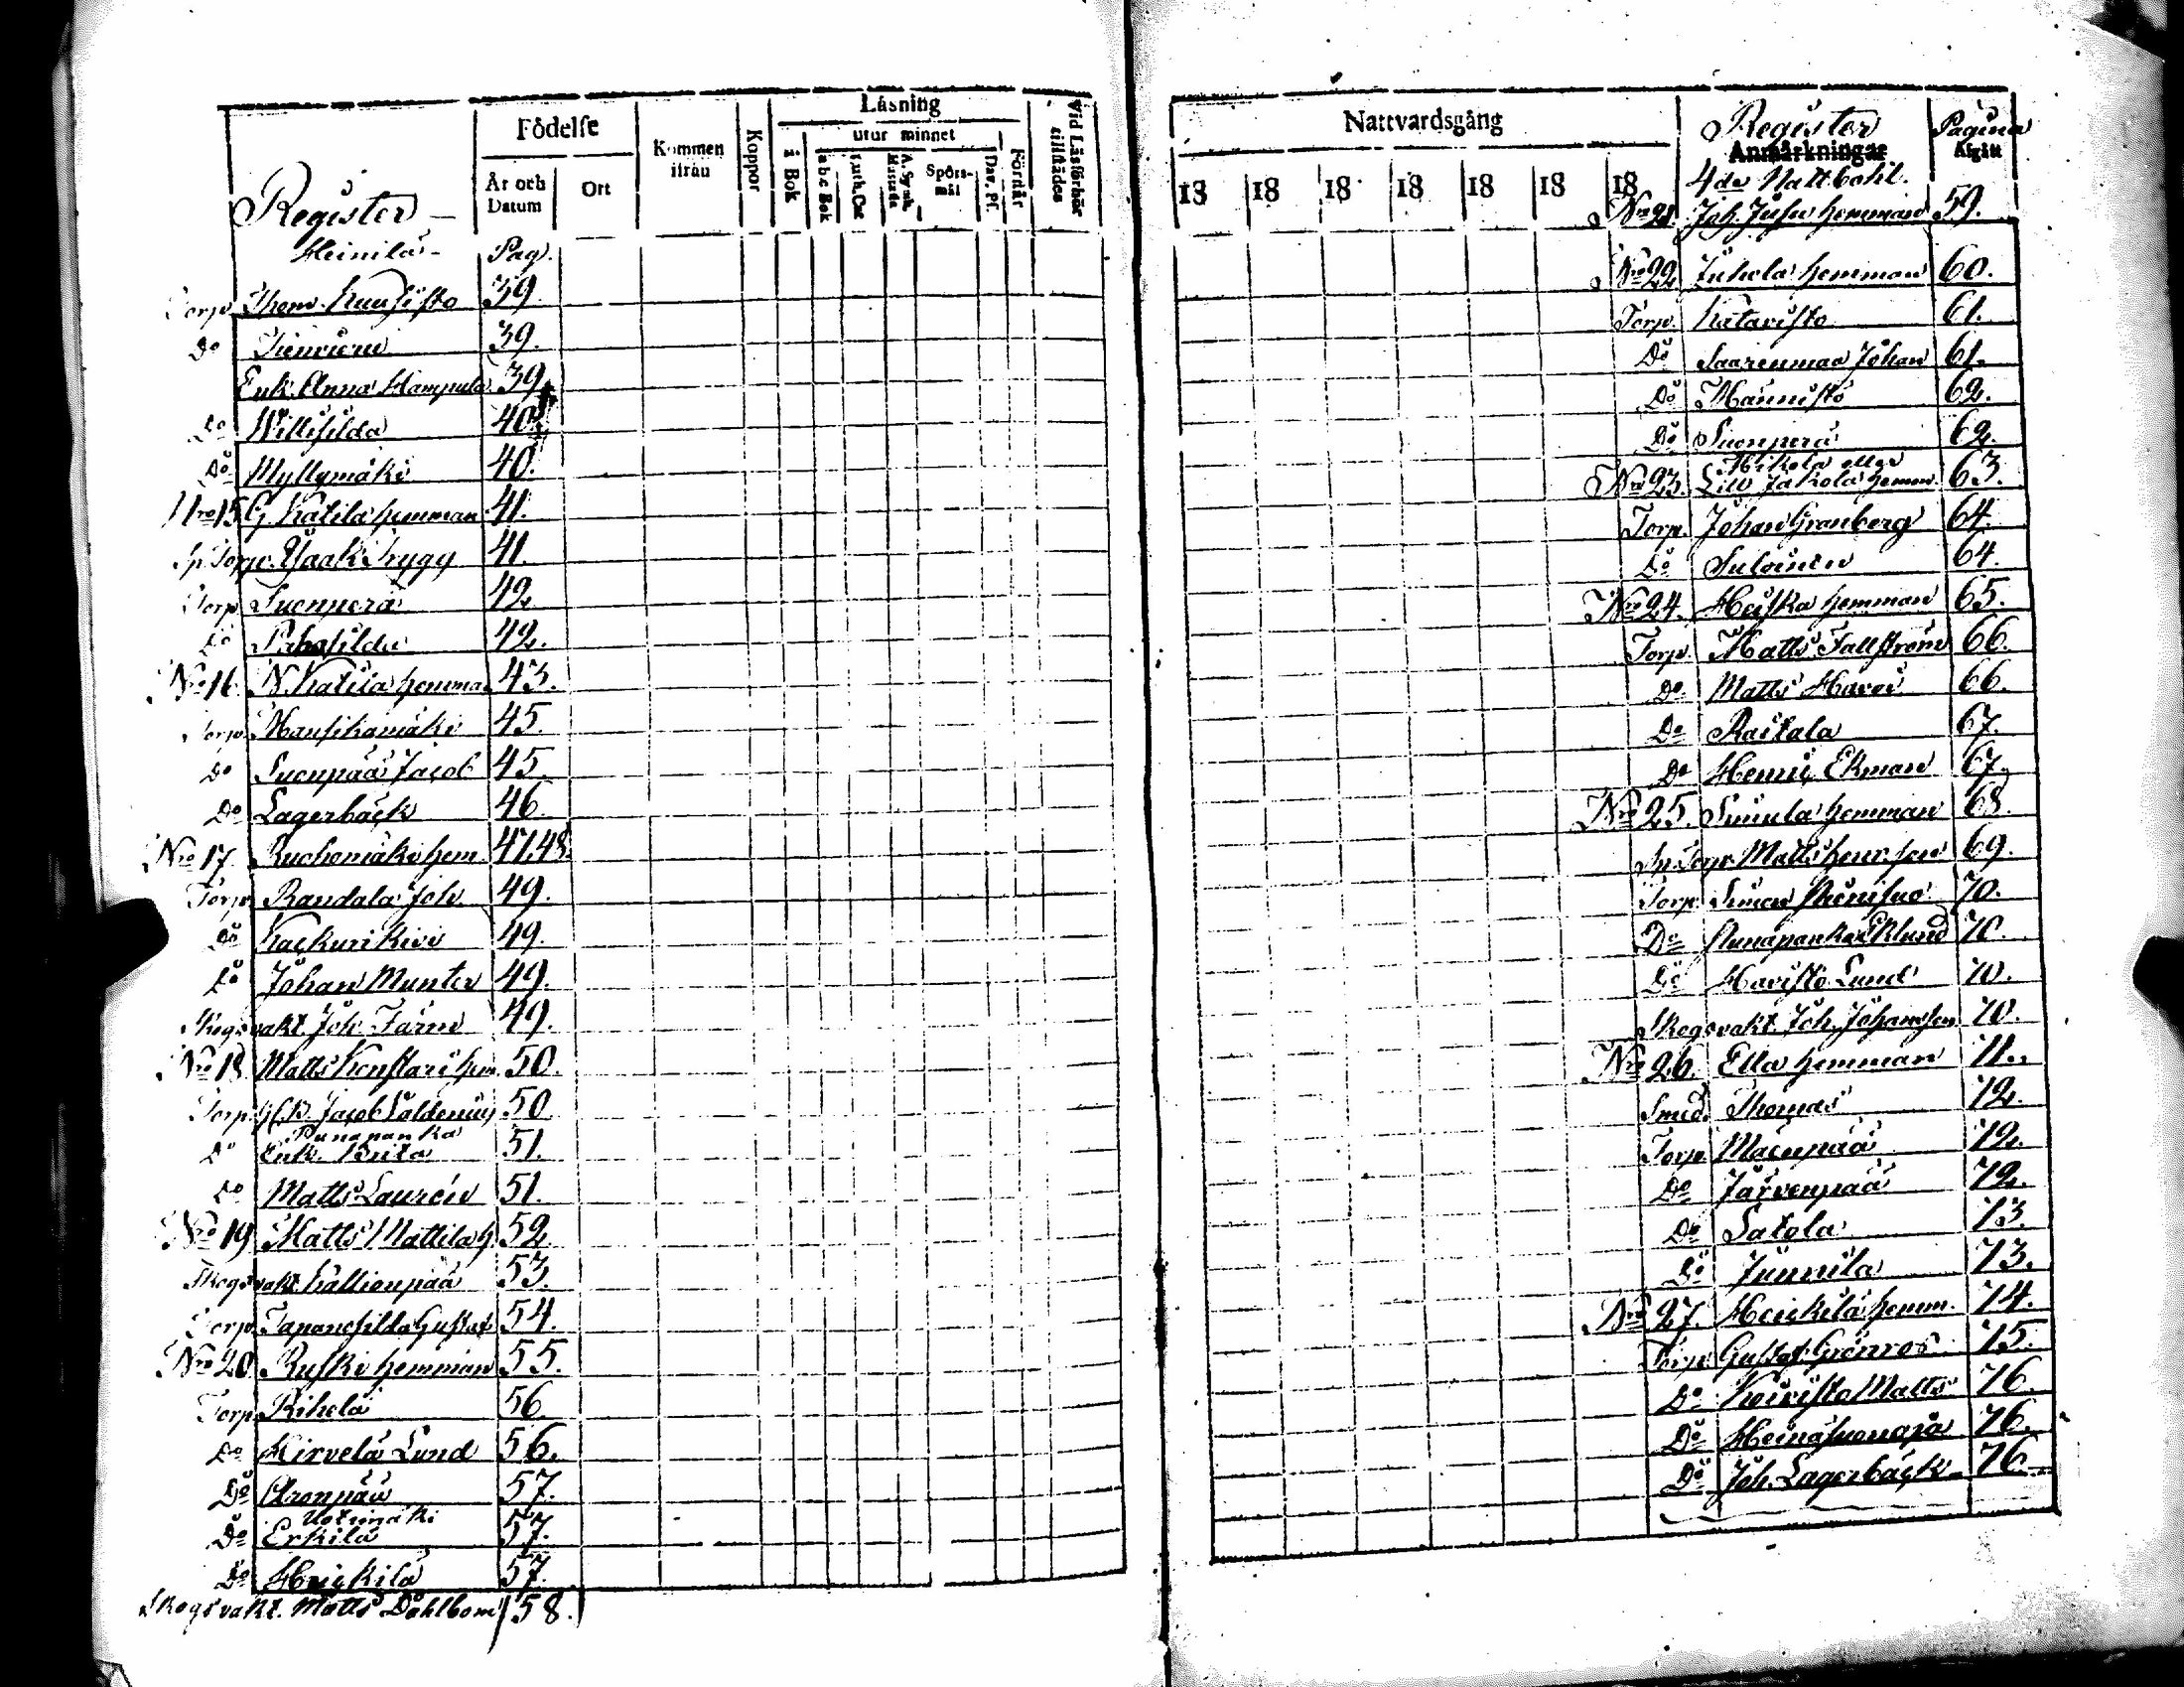 Födelse
Kommen ifrån
Koppor
Läsning
utur minnet
i Bok
a b c Bok
Luth. Cat
Spörsmål
Dav. Ps.
Förstår
Vid Läsförhör tillstädes
År och Datum
Ort
Register
Heinilä Pag.
Torp Thom. Kuusisto 39
Do 39.
Enk. Anna Hampula 39
Do Willisilda 40
Do Myllymäki 40.
Nro 15 G. Katila hemman 41.
Sp. Torp. Isaak Trygg 41.
Torp Suonperä 42.
Do Pahasilda 42.
Nro 16 N. Katila hemma 43.
Torp Mansikamäki 45.
Do Suonpää Jacob 45.
Do Lagerbäck 46
Nro 17. Ruohomäki hem. 47.48.
Torp Randala Joh 49.
Do Kackurikivi 49.
Do Johan Munter 49.
Skogsvakt Joh Färm 49.
Nro 18 Matts Konstari hem. 50.
Torp Jacob Saldenius 50
Punapanka
Do Enk. Brita 51.
Do Matts Laurén 51.
Nro 19 Matts Mattila h. 52.
Skogsvakt. Kallionpää 53.
Torp. Tapanosilda Gustaf 54.
Nro 20 Ruski hemman 55.
Torp Rihelä 56
Do Kirvelä Lund 56.
Do Aronpää 57.
Uotinmäki
Do Erkilä 57.
Do Heickilä 57.
Skogsvakt. Matts Dahlbom 58.
Nattvardsgång
18 18 18 18 18 18 18
Register Pagina
Anmärkningar Afgått
4de Nattbohl.
Nro 21 Joh. Jusu hemman 59.
Nro 22 Juhola hemman 60.
Torp. Katavisto 61.
Do Saarenmaa Johan 61.
Do Männistö 62.
Do Suonperä 62.
Mikola eller
Nro 23. Lill Jakola hemm. 63.
Torp. Johan Granberg 64.
Do Suloinen 64.
Nro 24. Heiska hemman 65.
Torp. Matts Fallström 66.
Do Matts Haroi 66.
Do Raitala 67.
Do Henric Ekman 67.
Nro 25. Simula hemman 68.
Sp. Torp. Matts Henr. son 69.
Torp. Simon 70.
Do Punapanka Eklund 70.
Do Havisto Lund 70.
Skogsvakt Joh. Johansson 70.
Nro 26. Ella hemman 71.
Smed. Thomas 72.
Torp. Maenpää 72.
Do Järvenpää 72.
Do Satola 73.
Do Junnila 73.
Nro 27. Heickilä hemm. 74.
Torp. Gustaf Grönroos 75.
Do Koivisto Matts 76.
Do Heinäsuonoja 76.
Do Joh. Lagerbäck 76.